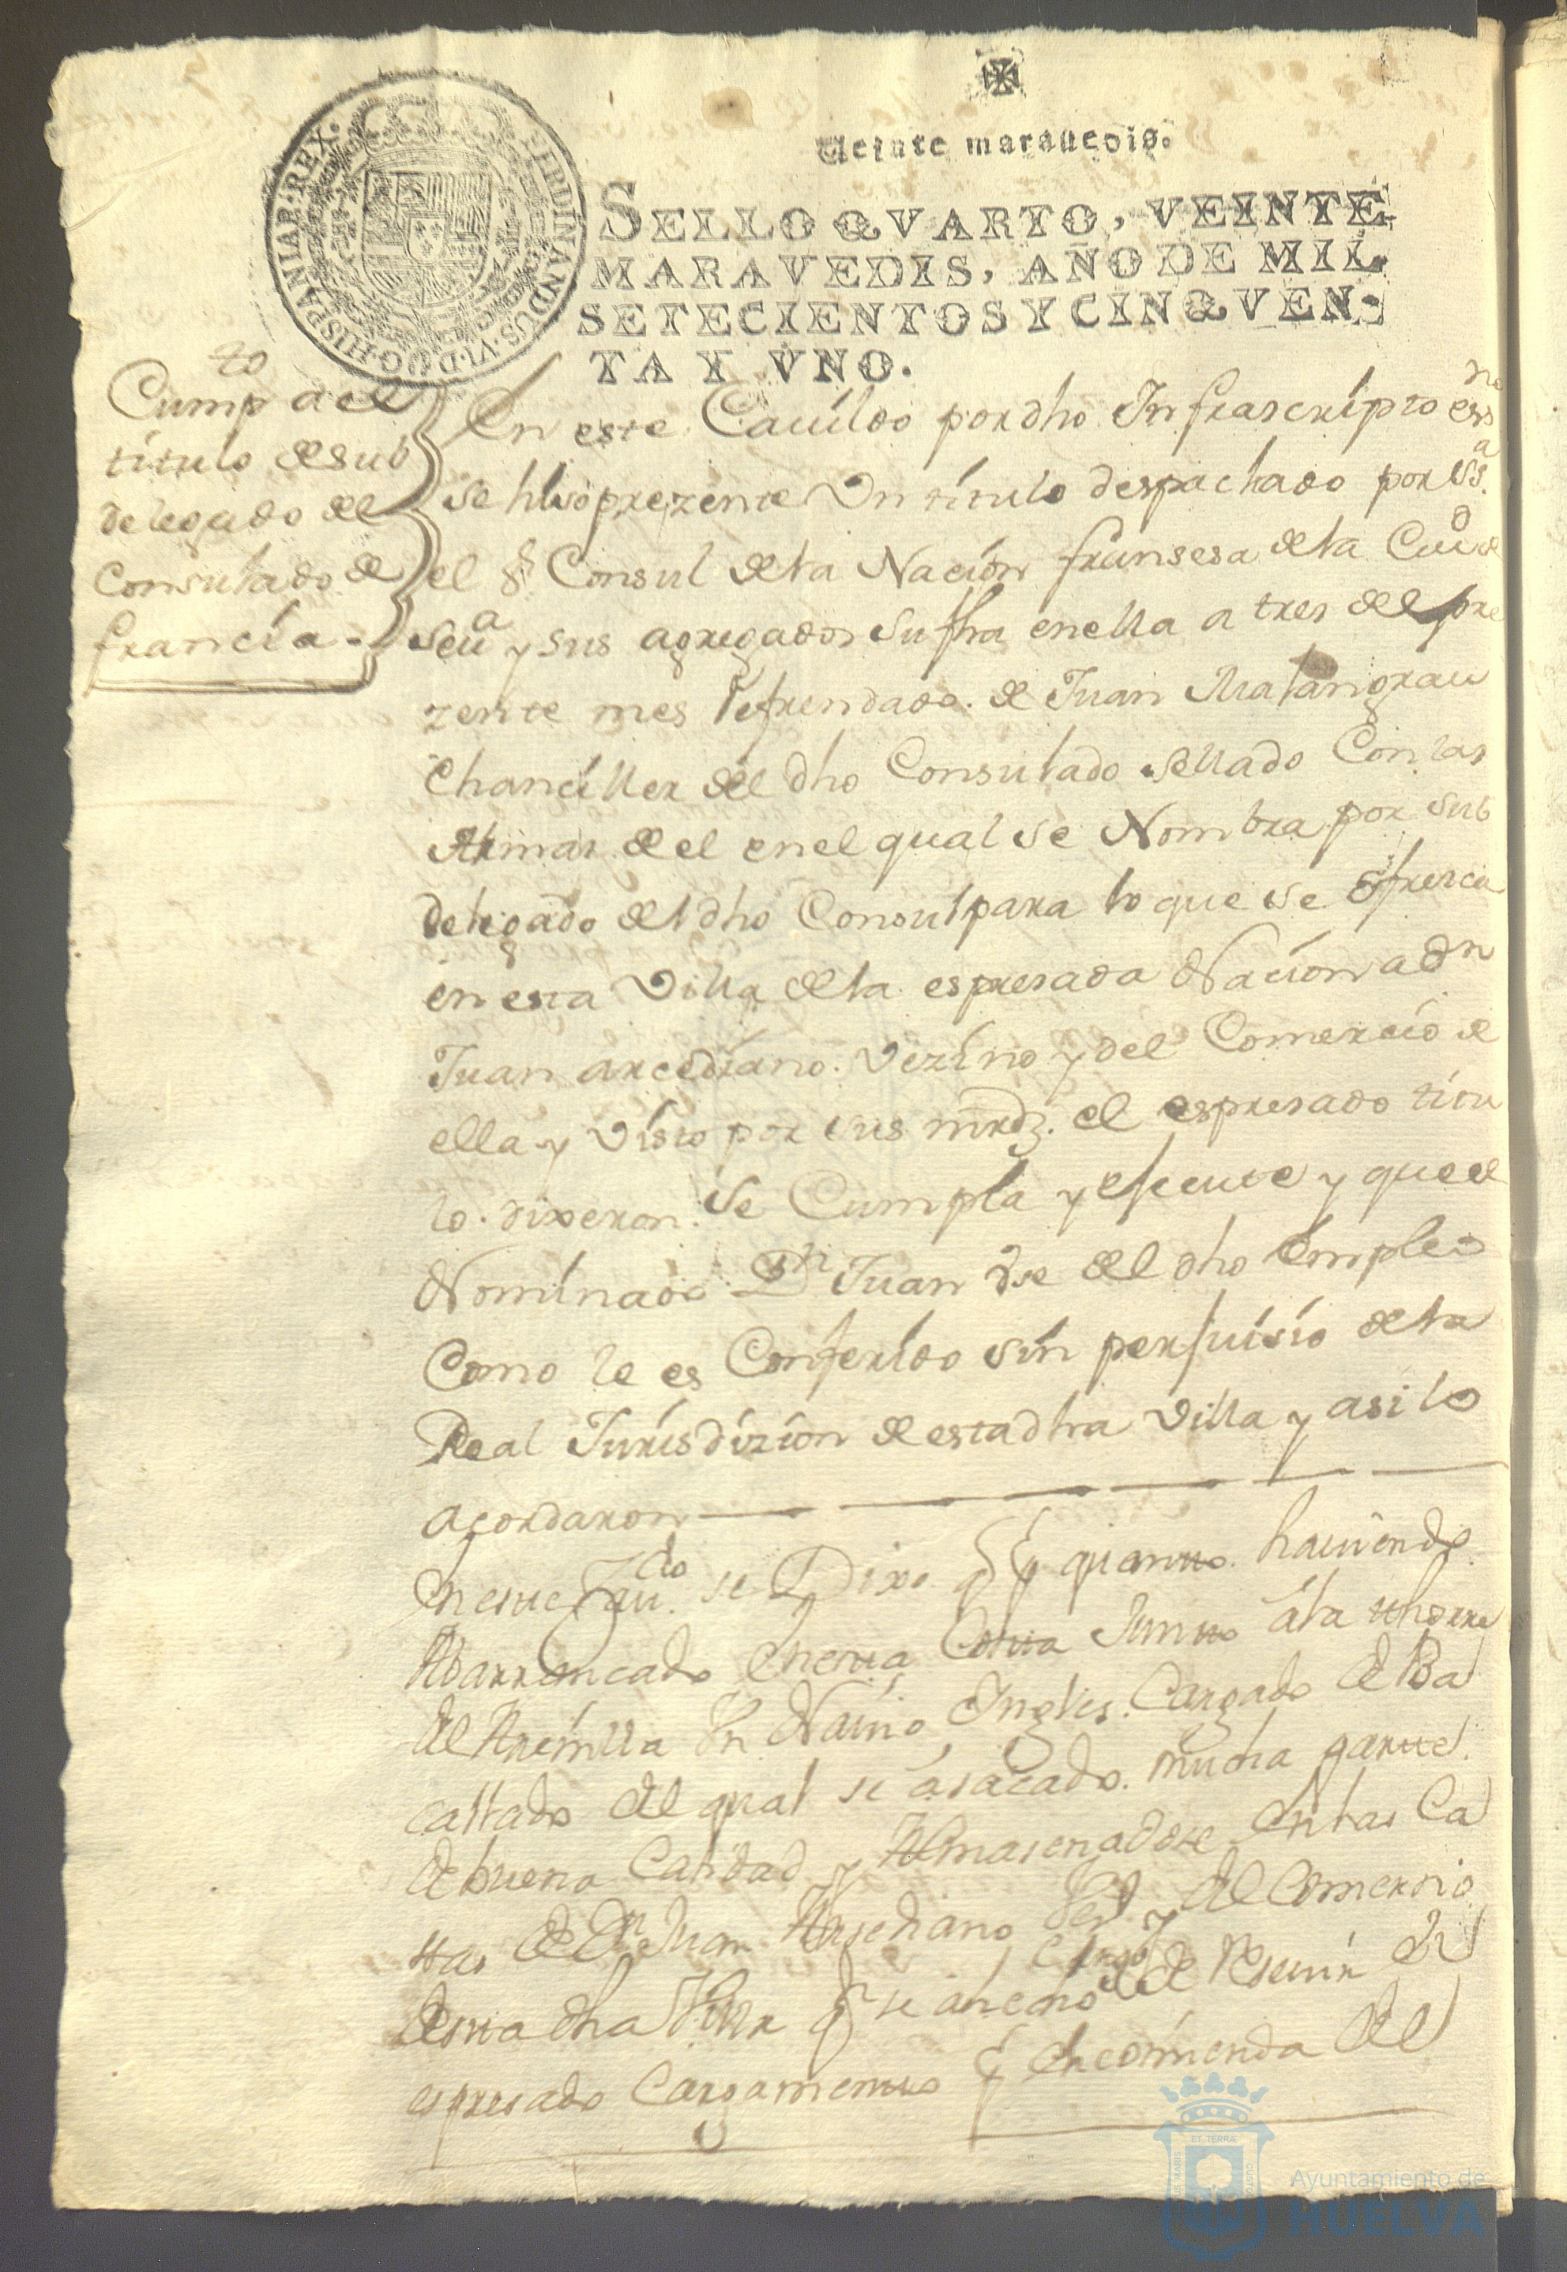 Veinte maravedis.
SELLO QVARTO, VEINTE
MARAVEDIS, AÑO DE MIL
SETECIENTOS Y CINQVEN-
TA Y VNO.
FERDINANDUS·VI·D·G·HISPANIAR·REX·
Cumpto a el
titulo de sub
delegado del
Consulado de
francia -
En este Cavildo por dho Infrascripto essno
se hiso prezente Un titulo despachado por
el Sr Consul de la Nacion fransesa de la Ciud de
Seva y sus agregados su fha en ella a tres del pre
zente mes Refrendado. de Juan
Chanciller del dho Consulado sellado Con las
Armas de el en el qual se Nombra por sub
delegado del dho Consul para lo que se ofresca
en esta Villa de la espresada Nacion a Dn
Juan arcediano. Vezino y del Comercio de
ella y Visto por sus mrdz. el espresado titu
lo. dixeron. se Cumpla y efecute y que el
Nominado Dn Juan Use del dho Empleo
Como le es Conferido sin perjuisio de la
Real Jurisdizion de esta dha Villa y asi lo
acordaron
En este Cavdo se Dixo q pr quanto haviendo
Abarrancado En esta Costa Junto a la
del Aremilla Un Navio Ingles. Cargado de Ba
callado del qual se a sacado. mucha parte
de buena Calidad y Almasenadose En las Ca
sas de Dn Juan Arsediano Vesº y del Comersio
de esta dha Villa qn se a hecho Cargo de
espresado Cargamento pr Encomienda del
Ayuntamiento de
HUELVA